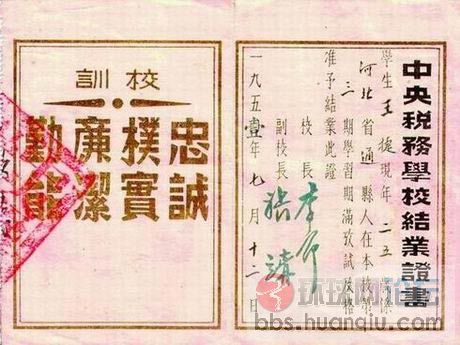 中央税務學校結業證書
學生王現年二五歲
河北省通縣人在本校第
三期學習期滿攷試及格
准予結業此證
校長李
副校長張
一九五壹年七月十二日
校訓
忠誠
樸實
廉潔
勤能
环球网论坛
bbs.huanqiu.com